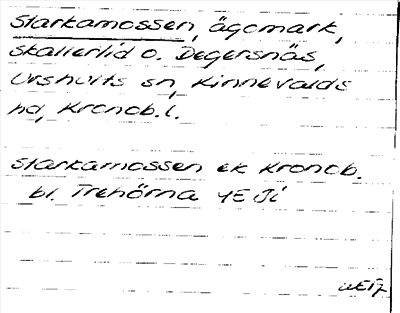 Starkamossen, ägomark,
Skallerlid o. Degersnäs,
Urshults sn, Kinnevalds
hd, Kronob. l.
Starkamossen ek Kronob.
bl. Trehörna 4E Ji